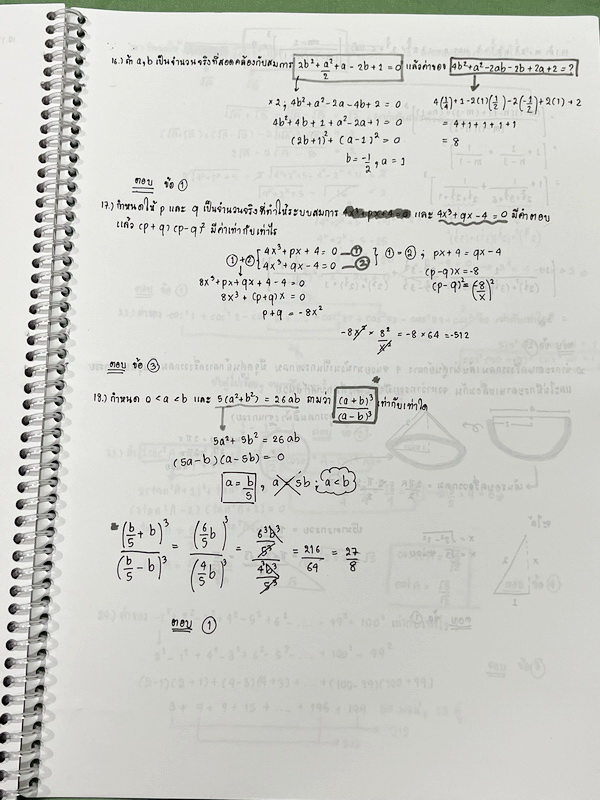 16.) ถ้า a,b เป็นจำนวนจริงที่สอดคล้องกับสมการ 2b² + a²/2 + a - 2b + 1 = 0 แล้วค่าของ 4b² + a² - 2ab - 2b + 2a + 2 = ?
×2, 4b² + a² - 2a - 4b + 2 = 0
4(1/4) + 1 - 2(1)(1/2) - 2(-1/2) + 2(1) + 2
4b² + 4b + 1 + a² - 2a + 1 = 0
= 4 + 1 + 1 + 1 + 1
(2b+1)² + (a-1)² = 0
= 8
b = -1/2, a = 1
ตอบ ข้อ ①
17.) กำหนดให้ p และ q เป็นจำนวนจริงที่ทำให้ระบบสมการ และ 4x³ + qx - 4 = 0 มีคำตอบ
แล้ว (p+q)(p-q)² มีค่าเท่ากับเท่าไร
①+② { 4x³ + px + 4 = 0 —① } ① = ② ; px + 4 = qx - 4
4x³ + qx - 4 = 0 —②
(p-q)x = -8
8x³ + px + qx + 4 - 4 = 0
(p-q)² = (-8/x)²
8x³ + (p+q)x = 0
p+q = -8x²
-8x² × 8²/x² = -8 × 64 = -512
ตอบ ข้อ ③
18.) กำหนด 0 < a < b และ 5(a²+b²) = 26ab ถามว่า (a+b)³/(a-b)³ เท่ากับเท่าใด
5a² + 5b² = 26ab
(5a-b)(a-5b) = 0
a = b/5 , a = 5b ; a < b
(b/5 + b)³/(b/5 - b)³ = (6/5 b)³/(4/5 b)³ = (6³b³/5³)/(4³b³/5³) = 216/64 = 27/8
ตอบ ①